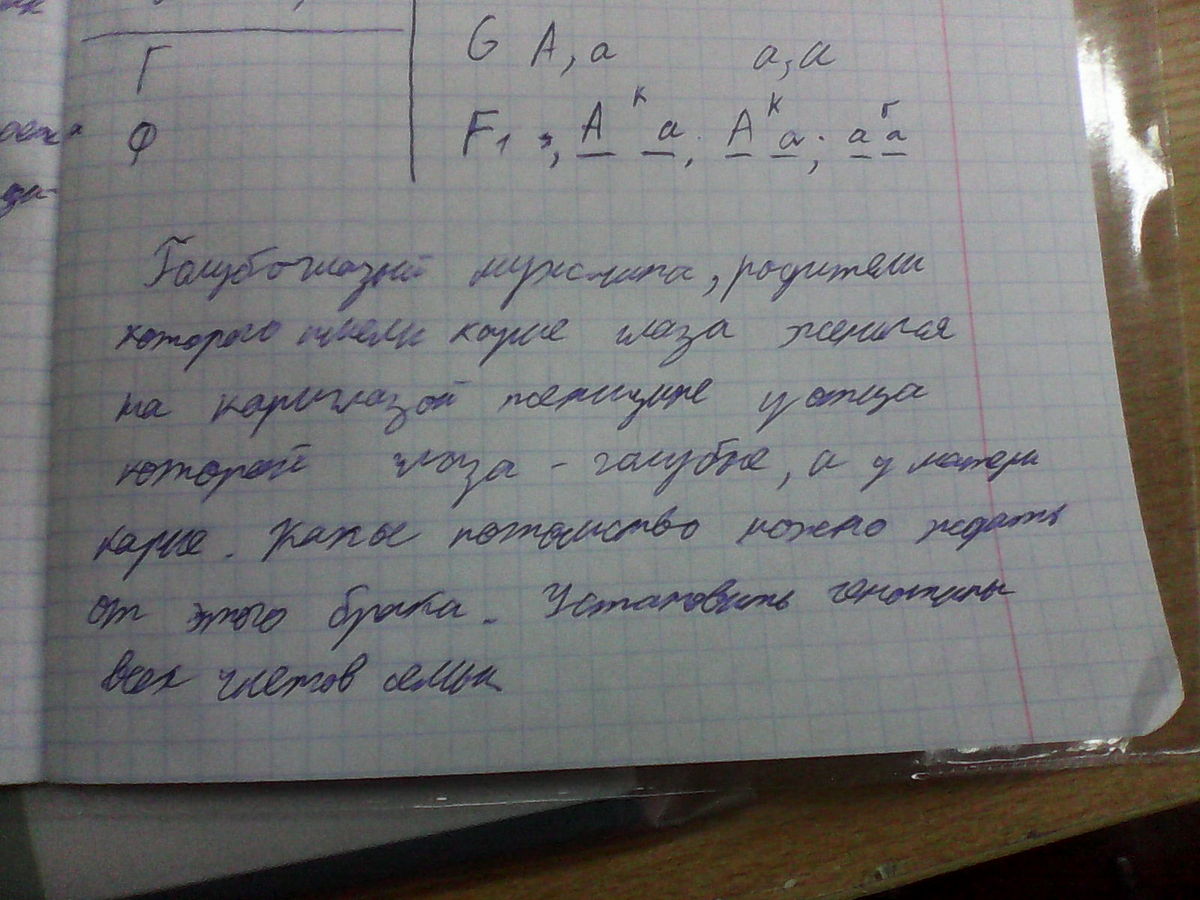 Г
G A, а а, а
Ф
F1 А к а; А к а; а г а
Голубоглазый мужчина, родители
которого имели карие глаза женился
на кариглазой женщине у отца
которой глаза - голубые, а у матери
карие. Какое потомство можно ждать
от этого брака. Установить генотипы
всех членов семьи